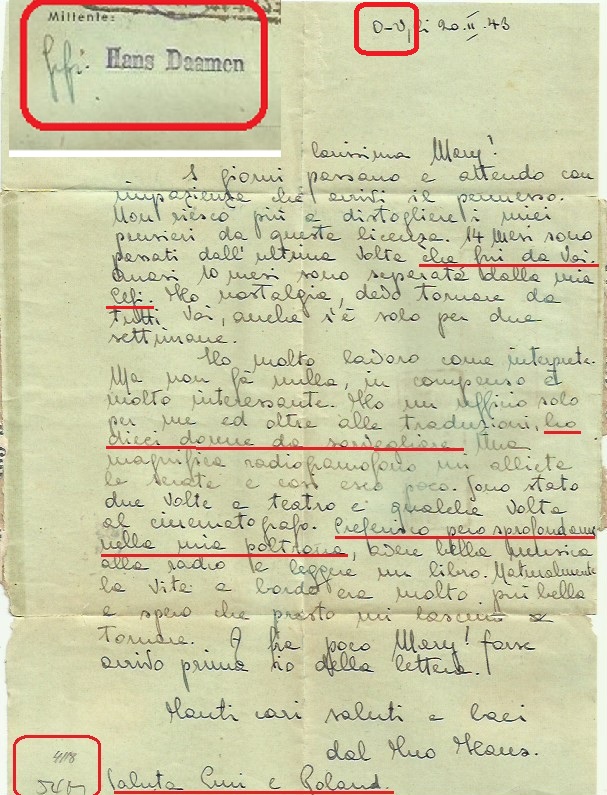 Mittente:
Hans Daamen
O-U, li 20.II.43
Carissima Mary!
I giorni passano e attendo con
impazienza che arrivi il permesso.
Non riesco più a distogliere i miei
pensieri da questa licenza. 14 mesi sono
passati dall'ultima volta che fui da Voi.
Quasi 10 mesi sono separato dalla mia
Gefi. Ho nostalgia, devo tornare da
tutti Voi, anche s'è solo per due
settimane.
Ho molto lavoro come interprete.
Ma non fà nulla, in compenso è
molto interessante. Ho un ufficio solo
per me ed oltre alle traduzioni, ho
dieci donne da sorvegliare. Una
magnifica radiogramofono mi allieta
le serate e così esco poco. Sono stato
due volte a teatro e qualche volta
al cinematografo. Preferisco però sprofondarmi
nella mia poltrona, avere bella musica
alla radio e leggere un libro. Naturalmente
la vita a bordo era molto più bella
e spero che presto mi lascino
tornare. A fra poco Mary! forse
arrivo prima io della lettera.
Tanti cari saluti e baci
dal tuo Hans.
Saluta Cini e Roland.
418